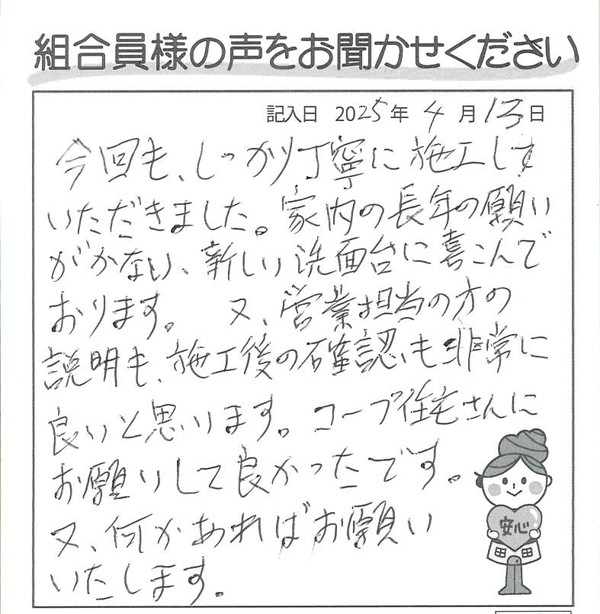 組合員様の声をお聞かせください
記入日 2025年 4月13日
今回も、しっかり丁寧に施工して
いただきました。家内の長年の願い
がかない、新しい洗面台に喜こんで
おります。 又、営業担当の方の
説明も、施工後の確認も非常に
良いと思います。コープ住宅さんに
お願いして良かったです。
又、何かあればお願い
いたします。
安心